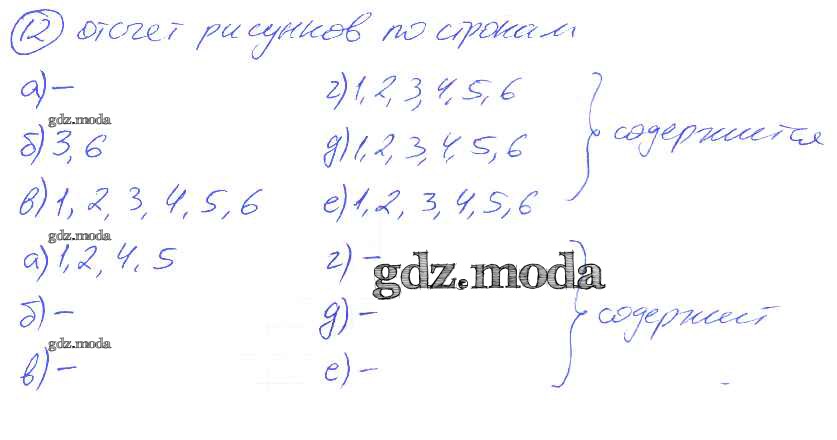 12 отсчет рисунков по строкам
а) – г) 1, 2, 3, 4, 5, 6
gdz.moda
содержится
б) 3, 6 д) 1, 2, 3, 4, 5, 6
в) 1, 2, 3, 4, 5, 6 е) 1, 2, 3, 4, 5, 6
gdz.moda
а) 1, 2, 4, 5 г) –
gdz.moda
б) – д) – содержит
gdz.moda
в) – е) –